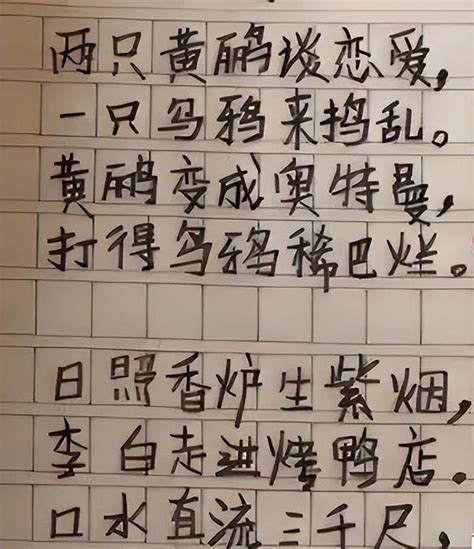 两只黄鹂谈恋爱,
一只乌鸦来捣乱。
黄鹂变成奥特曼,
打得乌鸦稀巴烂。
日照香炉生紫烟,
李白走进烤鸭店。
口水直流三千尺,